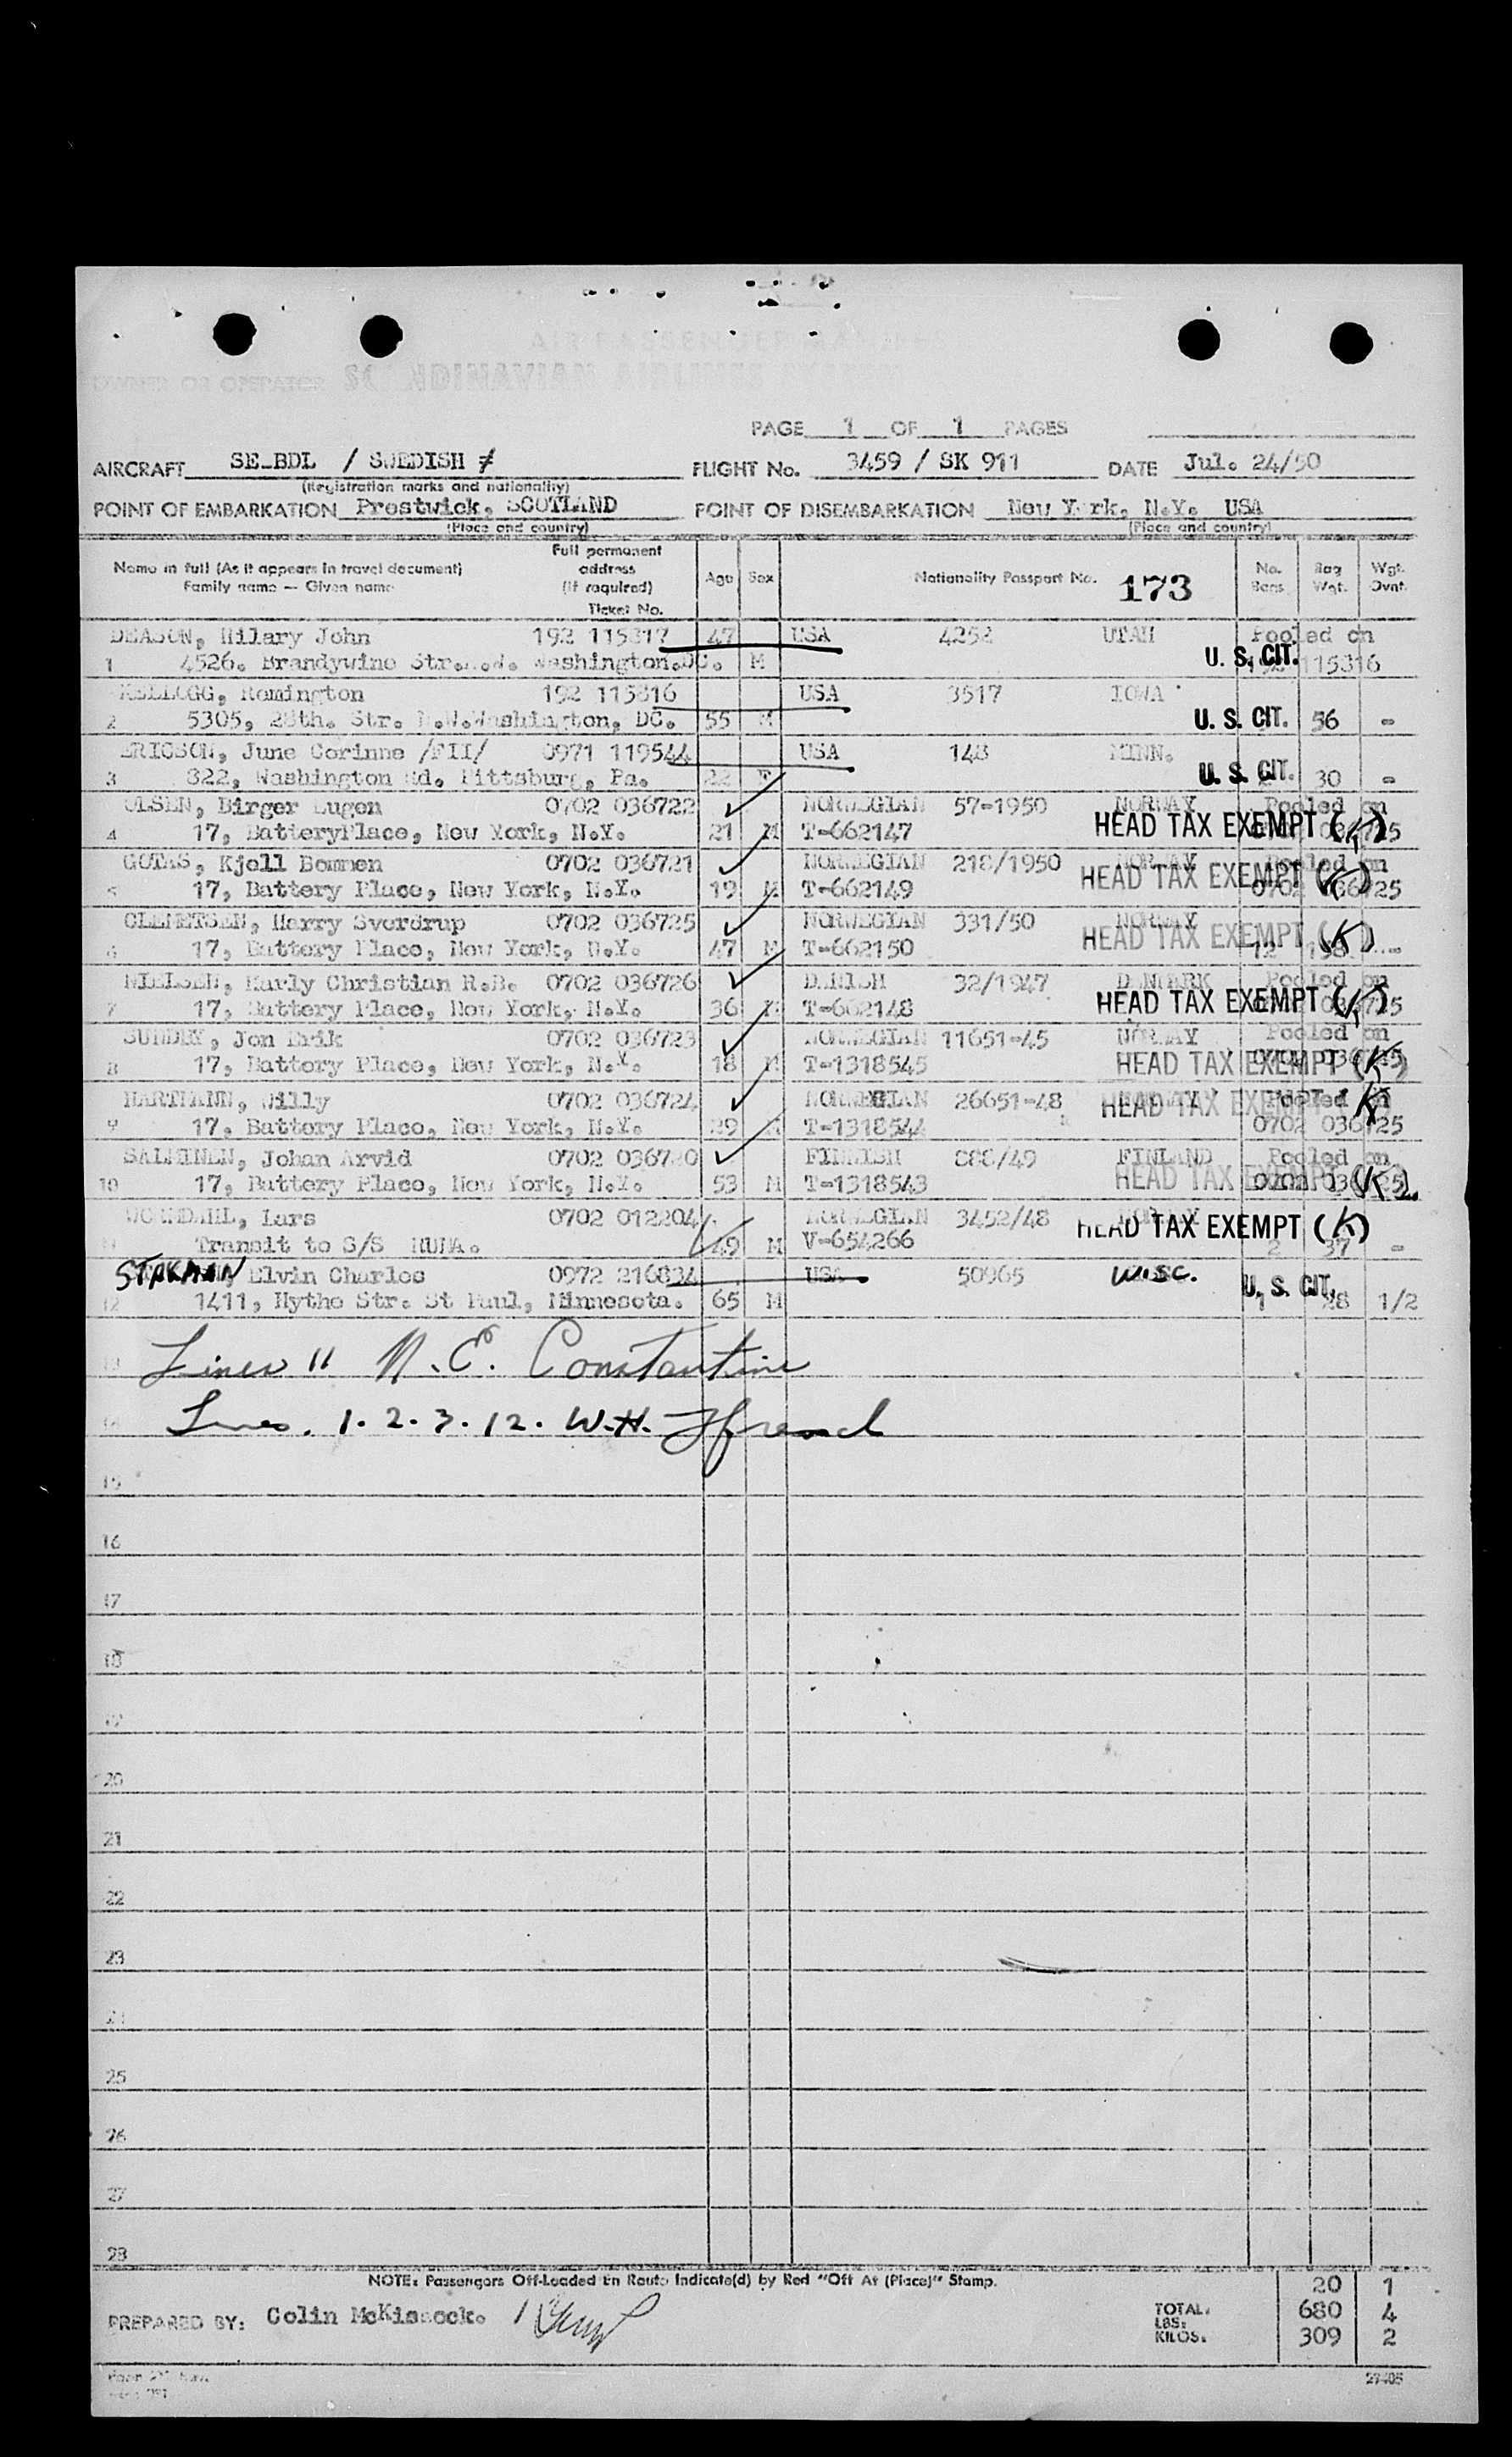 AIR PASSENGER MANIFEST
OWNER OR OPERATOR SCANDINAVIAN AIRLINES SYSTEM
PAGE 1 OF 1 PAGES
AIRCRAFT SE-BDL / SWEDISH / FLIGHT No. 3459 / SK 911 DATE Jul. 24/50
(Registration marks and nationality)
POINT OF EMBARKATION Prestwick, SCOTLAND POINT OF DISEMBARKATION New Y rk, N.Y. USA
(Place and country) (Place and country)
Name in full (As it appears in travel document) Family name — Given name Full permanent address (if required) Ticket No. Age Sex Nationality Passport No. 173 No. Bags Bag Wgt. Wgt. Ovnt.
DEASON, Hilary John 192 115317 47 USA 4252 UTAH Pooled on
1 4526. Brandywine Str.N.W. Washington.DC. M U. S. CIT. 115316
KELLOGG, Remington 192 115316 USA 3517 IOWA
2 5305, 28th. Str. N.W.Washington, DC. 55 M U. S. CIT. 56 -
ERICSON, June Corinne /FII/ 0971 119544 USA 148 MINN.
3 822, Washington Rd. Pittsburg, Pa. 22 F U. S. CIT. 30 -
OLSEN, Birger Eugen 0702 036722 NORWEGIAN 57-1950 NORWAY Pooled on
4 17, BatteryPlace, New York, N.Y. 21 M T-662147 HEAD TAX EXEMPT (K)
GOTAS, Kjell Bommen 0702 036721 NORWEGIAN 218/1950 NORWAY Pooled on
5 17, Battery Place, New York, N.Y. 19 M T-662149 HEAD TAX EXEMPT (K) 0702 036725
CLEMETSEN, Harry Sverdrup 0702 036725 NORWEGIAN 331/50 NORWAY
6 17, Battery Place, New York, N.Y. 47 M T-662150 HEAD TAX EXEMPT (K) 12 198 -
NIELSEN, Karly Christian R.B. 0702 036726 DANISH 32/1947 DENMARK Pooled on
7 17, Battery Place, New York, N.Y. 36 M T-662148 HEAD TAX EXEMPT (K)
SUNDBY, Jon Erik 0702 036723 NORWEGIAN 11651-45 NORWAY Pooled on
8 17, Battery Place, New York, N.Y. 18 M T-1318545 HEAD TAX EXEMPT (K)
HARTMANN, Willy 0702 036724 NORWEGIAN 26651-48 HEAD TAX EXEMPT (K) Pooled on
9 17, Battery Place, New York, N.Y. 29 M T-1318544 0702 036725
SALMINEN, Johan Arvid 0702 036720 FINNISH 888/49 FINLAND Pooled on
10 17, Battery Place, New York, N.Y. 53 M T-1318543 HEAD TAX EXEMPT (K)
Lars 0702 012204 NORWEGIAN 3452/48 HEAD TAX EXEMPT (K)
11 Transit to S/S 49 M V-654266 2 37 -
STAKMAN, Elvin Charles 0972 216834 USA 50965 WISC. U. S. CIT.
12 1411, Hythe Str. St Paul, Minnesota. 65 M 1 28 1/2
13 Lines 11 N. E. Constantine
14 Lines. 1. 2. 3. 12. W.H.
15
16
17
18
19
20
21
22
23
24
25
26
27
28
NOTE: Passengers Off-Loaded En Route Indicate(d) by Red "Off At (Place)" Stamp.
20 1
PREPARED BY: Colin McKissock.
TOTAL.
LBS: 680 4
KILOS. 309 2
27405